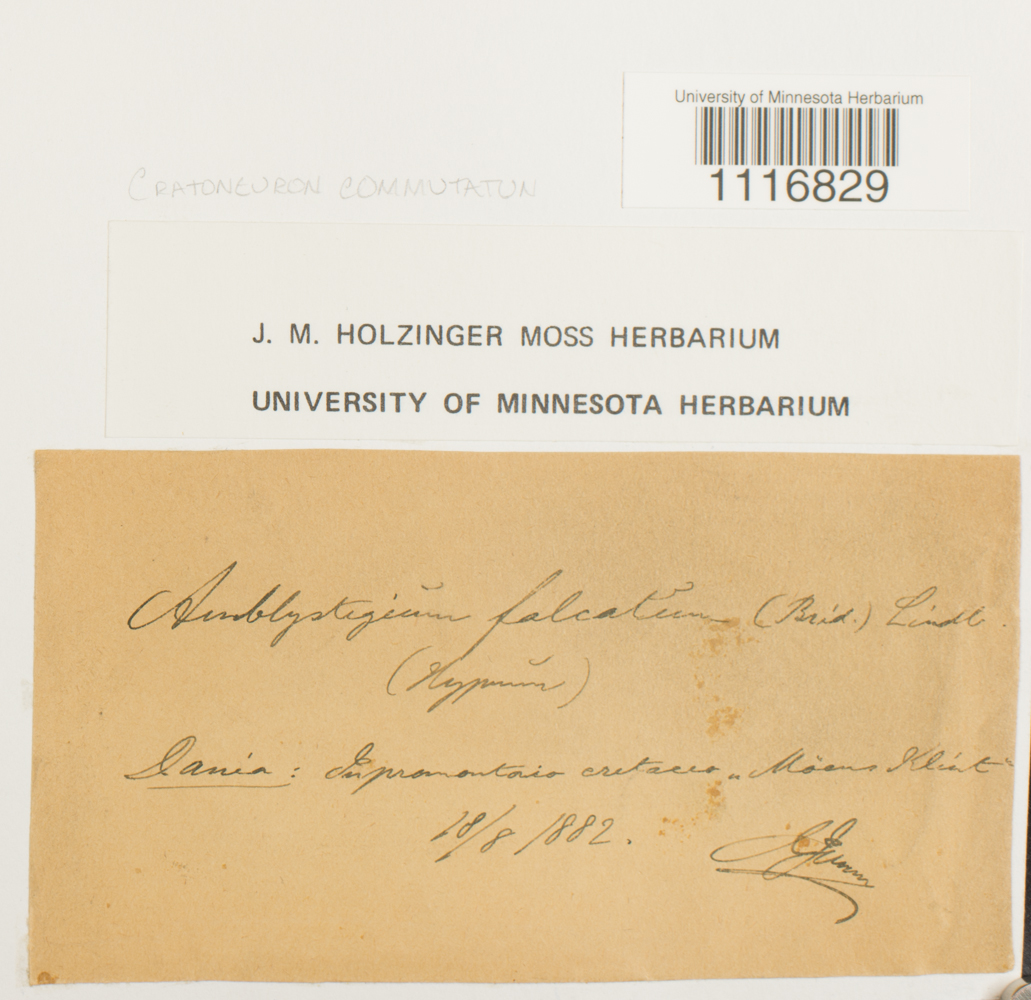 University of Minnesota Herbarium
1116829
CRATONEURON COMMUTATUM
J. M. HOLZINGER MOSS HERBARIUM
UNIVERSITY OF MINNESOTA HERBARIUM
Amblystegiŭm falcatŭm (Brid.) Lindb.
(Hypnŭm)
Dania: In promontorio cretaceo „Möens Klint"
18/8 1882.